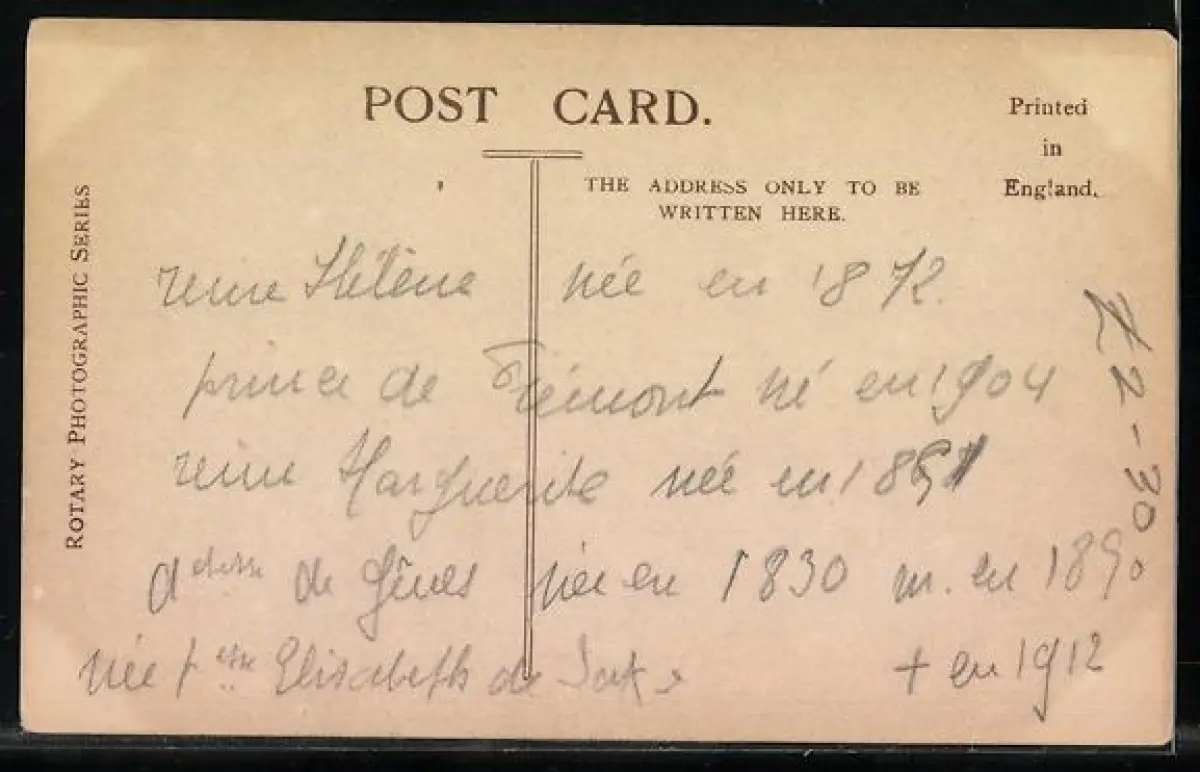 POST CARD.
Printed
in
England.
THE ADDRESS ONLY TO BE
WRITTEN HERE.
ROTARY PHOTOGRAPHIC SERIES
reine Hélène née en 1872.
prince de Piémont né en 1904
reine Marguerite née en 1851
desse de Gênes née en 1830 m. en 1850
née pesse Elisabeth de Saxe + en 1912
2-30